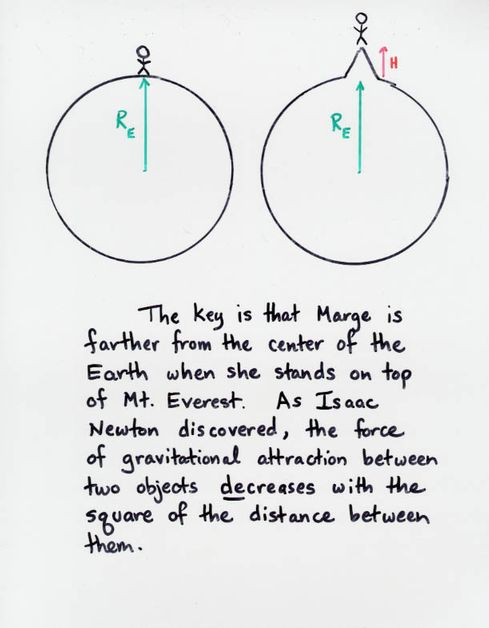 H
R_E
R_E
The key is that Marge is
farther from the center of the
Earth when she stands on top
of Mt. Everest. As Isaac
Newton discovered, the force
of gravitational attraction between
two objects decreases with the
square of the distance between
them.